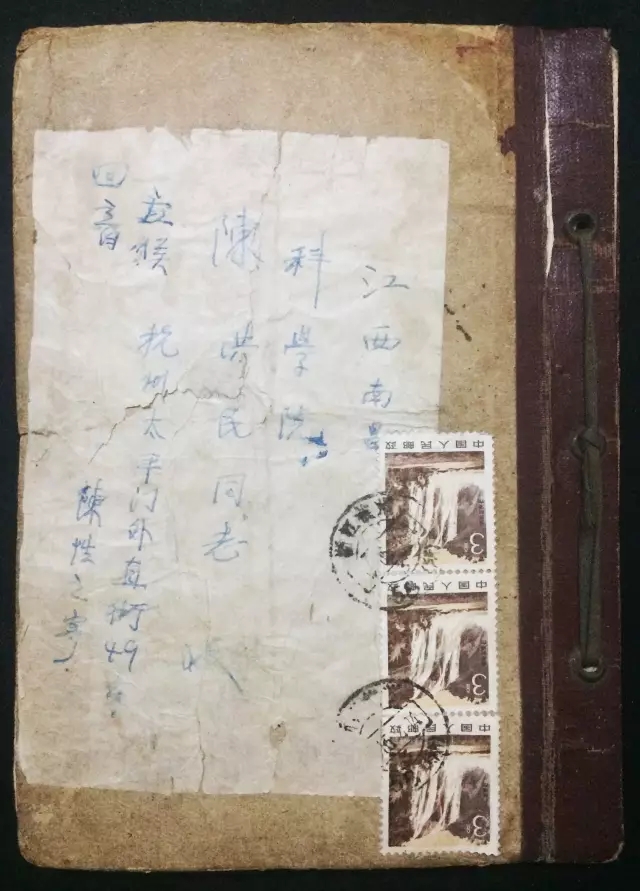 江西南昌
科學院
陳洪民同志 收
候 杭州太平门外直街49
回音
陳性之寄
中国人民邮政
3
中国人民邮政
3
中国人民邮政
3